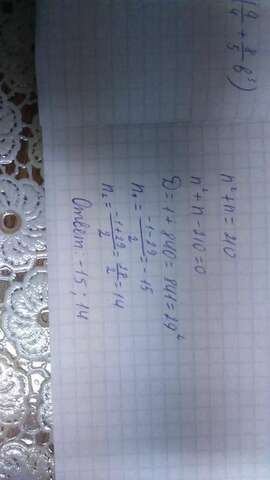 (9/4 + 8/5 b³)
n²+n = 210
n²+n-210=0
D=1+840=841=29²
n₁= (-1-29)/2 = -15
n₂= (-1+29)/2 = 28/2 = 14
Ответ: -15; 14